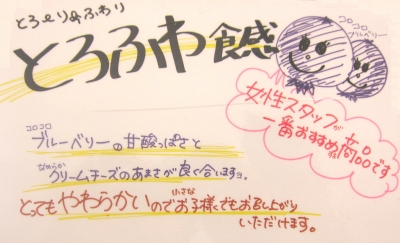 とろ〜り&ふわり
とろふわ食感
コロコロ
ブルーベリー
女性スタッフが
一番おすすめ商品です
コロコロ
ブルーベリーの甘酸っぱさと
なめらか
クリームチーズのあまさが良く合いますヨ。
小さな
とってもやわらかいのでお子様でもお召し上がり
いただけます。